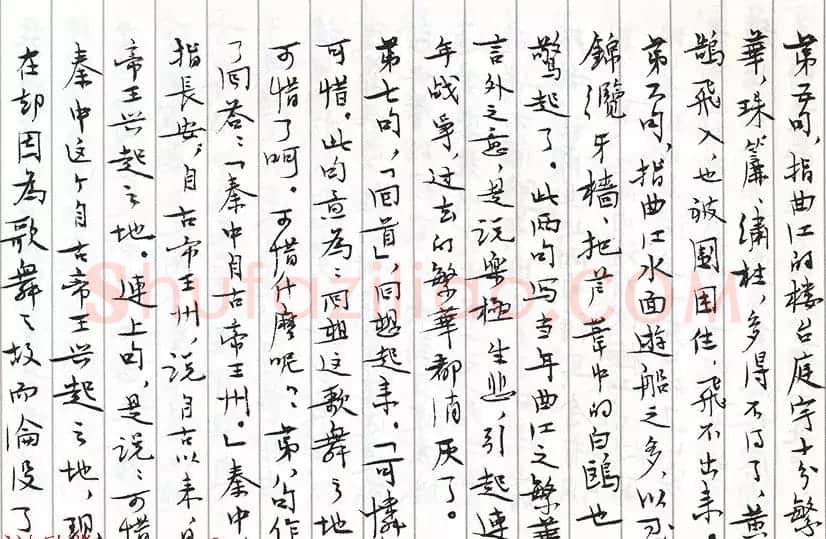 第五句，指曲江的楼台庭宇十分繁
華，珠簾、繡柱，多得不得了，黄
鵠飛入，也被圍困住，飛不出来。
第六句，指曲江水面遊船之多，以至
錦纜牙檣，把芦葦中的白鷗也
驚起了。此两句写当年曲江之繁華
言外之意，是说樂極生悲，引起連
年战爭，过去的繁華都消灰了。
第七句，「回首」回想起来。「可憐
可惜。此句意为：回想这歌舞之地
可惜了啊。可惜什麽呢？：第八句作
了回答：「秦中自古帝王州。」秦中
指長安，自古帝王州，说自古以来，是
帝王兴起之地。連上句，是说：可惜
秦中这个自古帝王兴起之地，现
在却因為歌舞之故而淪没了
Shufaziliao.com